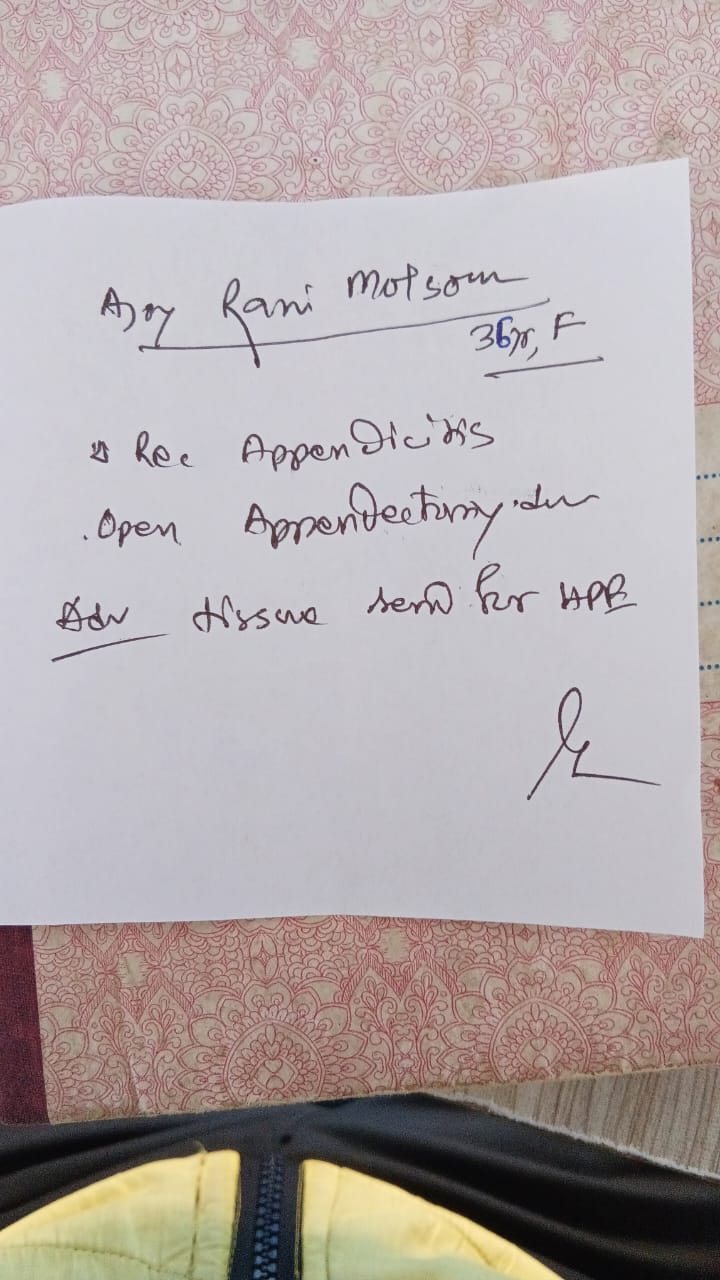 Ajoy Rani Molsom
36yr, F
Rec Appendicitis
. Open Appendectomy
Adv tissue send for HPR